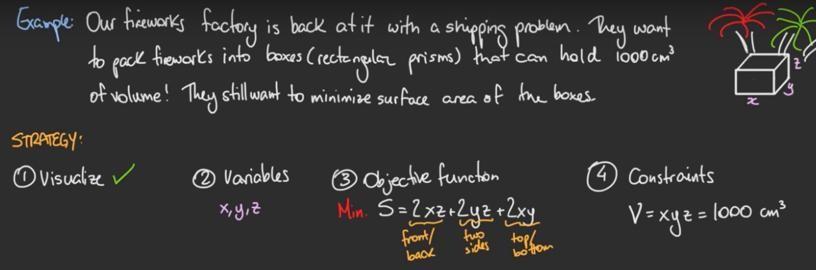 Example: Our fireworks factory is back at it with a shipping problem. They want
to pack fireworks into boxes (rectangular prisms) that can hold 1000 cm³
of volume! They still want to minimize surface area of the boxes.
z
y
x
STRATEGY:
① Visualize ✓
② Variables
x, y, z
③ Objective function
Min. S = 2xz + 2yz + 2xy
front/back
two sides
top/bottom
④ Constraints
V = xyz = 1000 cm³